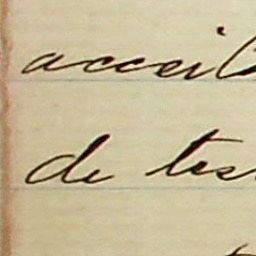 acceit
de tes